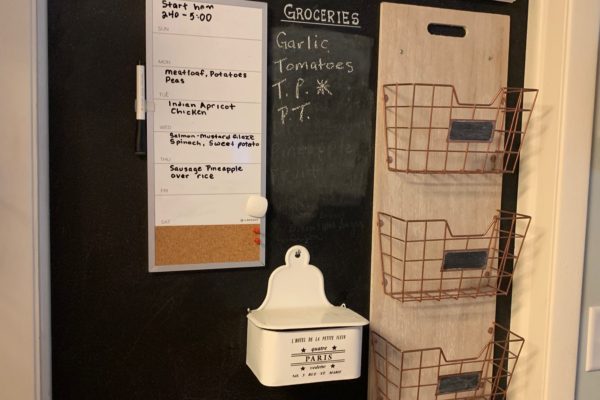 Start ham
240 - 5:00
SUN
MON
meatloaf, Potatoes
Peas
TUE
Indian Apricot
Chicken
WED
Salmon-Mustard Glaze
Spinach, Sweet potato
THU
Sausage Pineapple
over rice
FRI
SAT
GROCERIES
Garlic
Tomatoes
T. P. *
P.T.
L'HOTEL DE LA PETITE FLEUR
quatre
PARIS
vedette